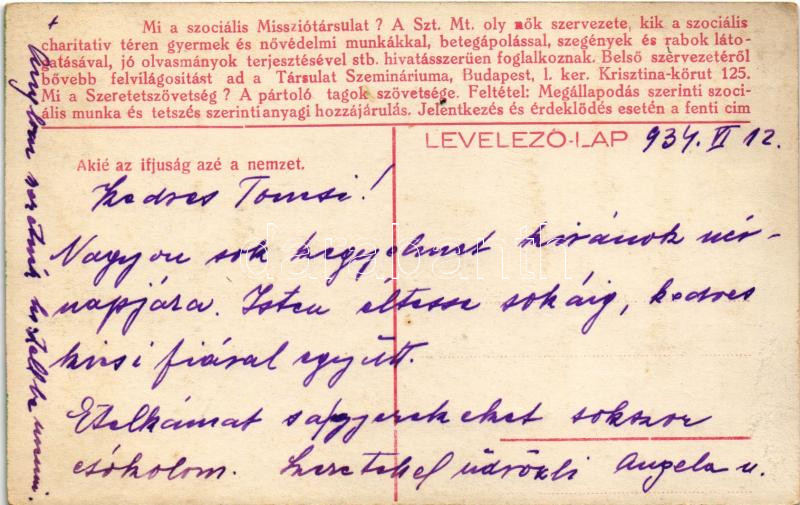 Mi a szociális Missziótársulat? A Szt. Mt. oly nők szervezete, kik a szociális
charitativ téren gyermek és nővédelmi munkákkal, betegápolással, szegények és rabok láto-
gatásával, jó olvasmányok terjesztésével stb. hivatásszerüen foglalkoznak. Belső szervezetéről
bővebb felvilágositást ad a Társulat Szemináriuma, Budapest, I. ker. Krisztina-körut 125.
Mi a Szeretetszövetség? A pártoló tagok szövetsége. Feltétel: Megállapodás szerinti szoci-
ális munka és tetszés szerinti anyagi hozzájárulás. Jelentkezés és érdeklődés esetén a fenti cim
LEVELEZŐ-LAP 934. VI 12.
Akié az ifjuság azé a nemzet.
Kedves Tomsi!
Nagyon sok kegyelmet kivánok név-
napjára. Isten éltesse sokáig, kedves
kicsi fiával együtt.
Etelkámat s a gyerekeket sokszor
csókolom. Szeretettel üdvözli Angela n.
darabanth